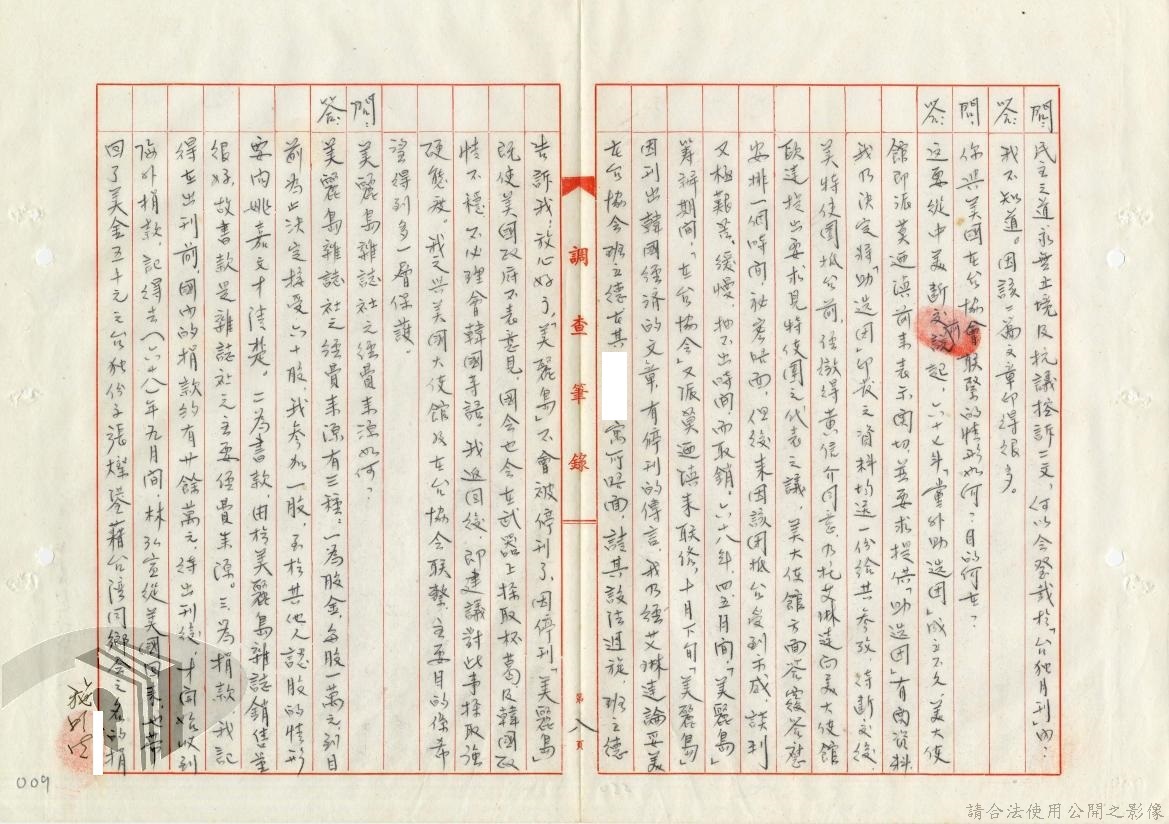 問：民主之道永無止境及抗議控訴二文，何以会登載於「台独月刊」內？
答：我不知道。因該二篇文章印得很多。
問：你與美國在台協會联繫的情形如何？目的何在？
答：這要從中美断交前說起，六十七年，黨外助选团」成立不久，美大使
館即派莫迺滇前來表示関切，並要求提供「助选团」有関資料
我乃決定將「助选团」印發之資料均送一份给其参攷，待断交後，
美特使团抵台前，經徵得黃信介同意，乃托艾琳達向美大使館
歐達提出要求見特使團之代表之議，美大使館方面答覆答應
安排一個時間，祕密晤面，但後來因該团抵台受到示威，談判
又極艱苦、緩慢，抽不出時间，而取銷。六十八年，四五月間，「美麗島」
筹辦期间，「在台協会」又派莫迺滇來联络，十月下旬「美麗島」
因刊出韓國經济的文章，有停刊的傳言，我乃經艾琳達論妥美
在台協会班立德在其 寓所晤面，請其設法迴旋，班立德
調查筆錄
第八頁
告訴我：放心好了，「美麗島」不會被停刊了，因停刊「美麗島」
既使美國政府不表意見，國会也会在武器上採取杯葛及韓國政
情不穩，不必理會韓國手諾。我返回後，即建議對此事採取強
硬態度，我之與美國大使館及在台協会联繫主要目的係希
望得到多一層保護。
問：美麗島雜誌社之經費來源如何？
答：美麗島雜誌社之經費來源有三種：一為股金，每股一萬元到目
前為止決定接受六十股，我参加一股，至於其他人認股的情形
要問姚嘉文才清楚。二為書款，由於美麗島雜誌銷售量
很好，故書款是雜誌社之主要經費來源。三為捐款，我記
得在出刊前，國內的捐款約有廿餘萬元，待出刊後，才開始收到
海外捐款，記得去（六十八年九月間，林弘宣從美國回來，也帶
回了美金五十元之台独份子張燦鍙藉台湾同鄉会之名的捐
施明
009
請合法使用公開之影像